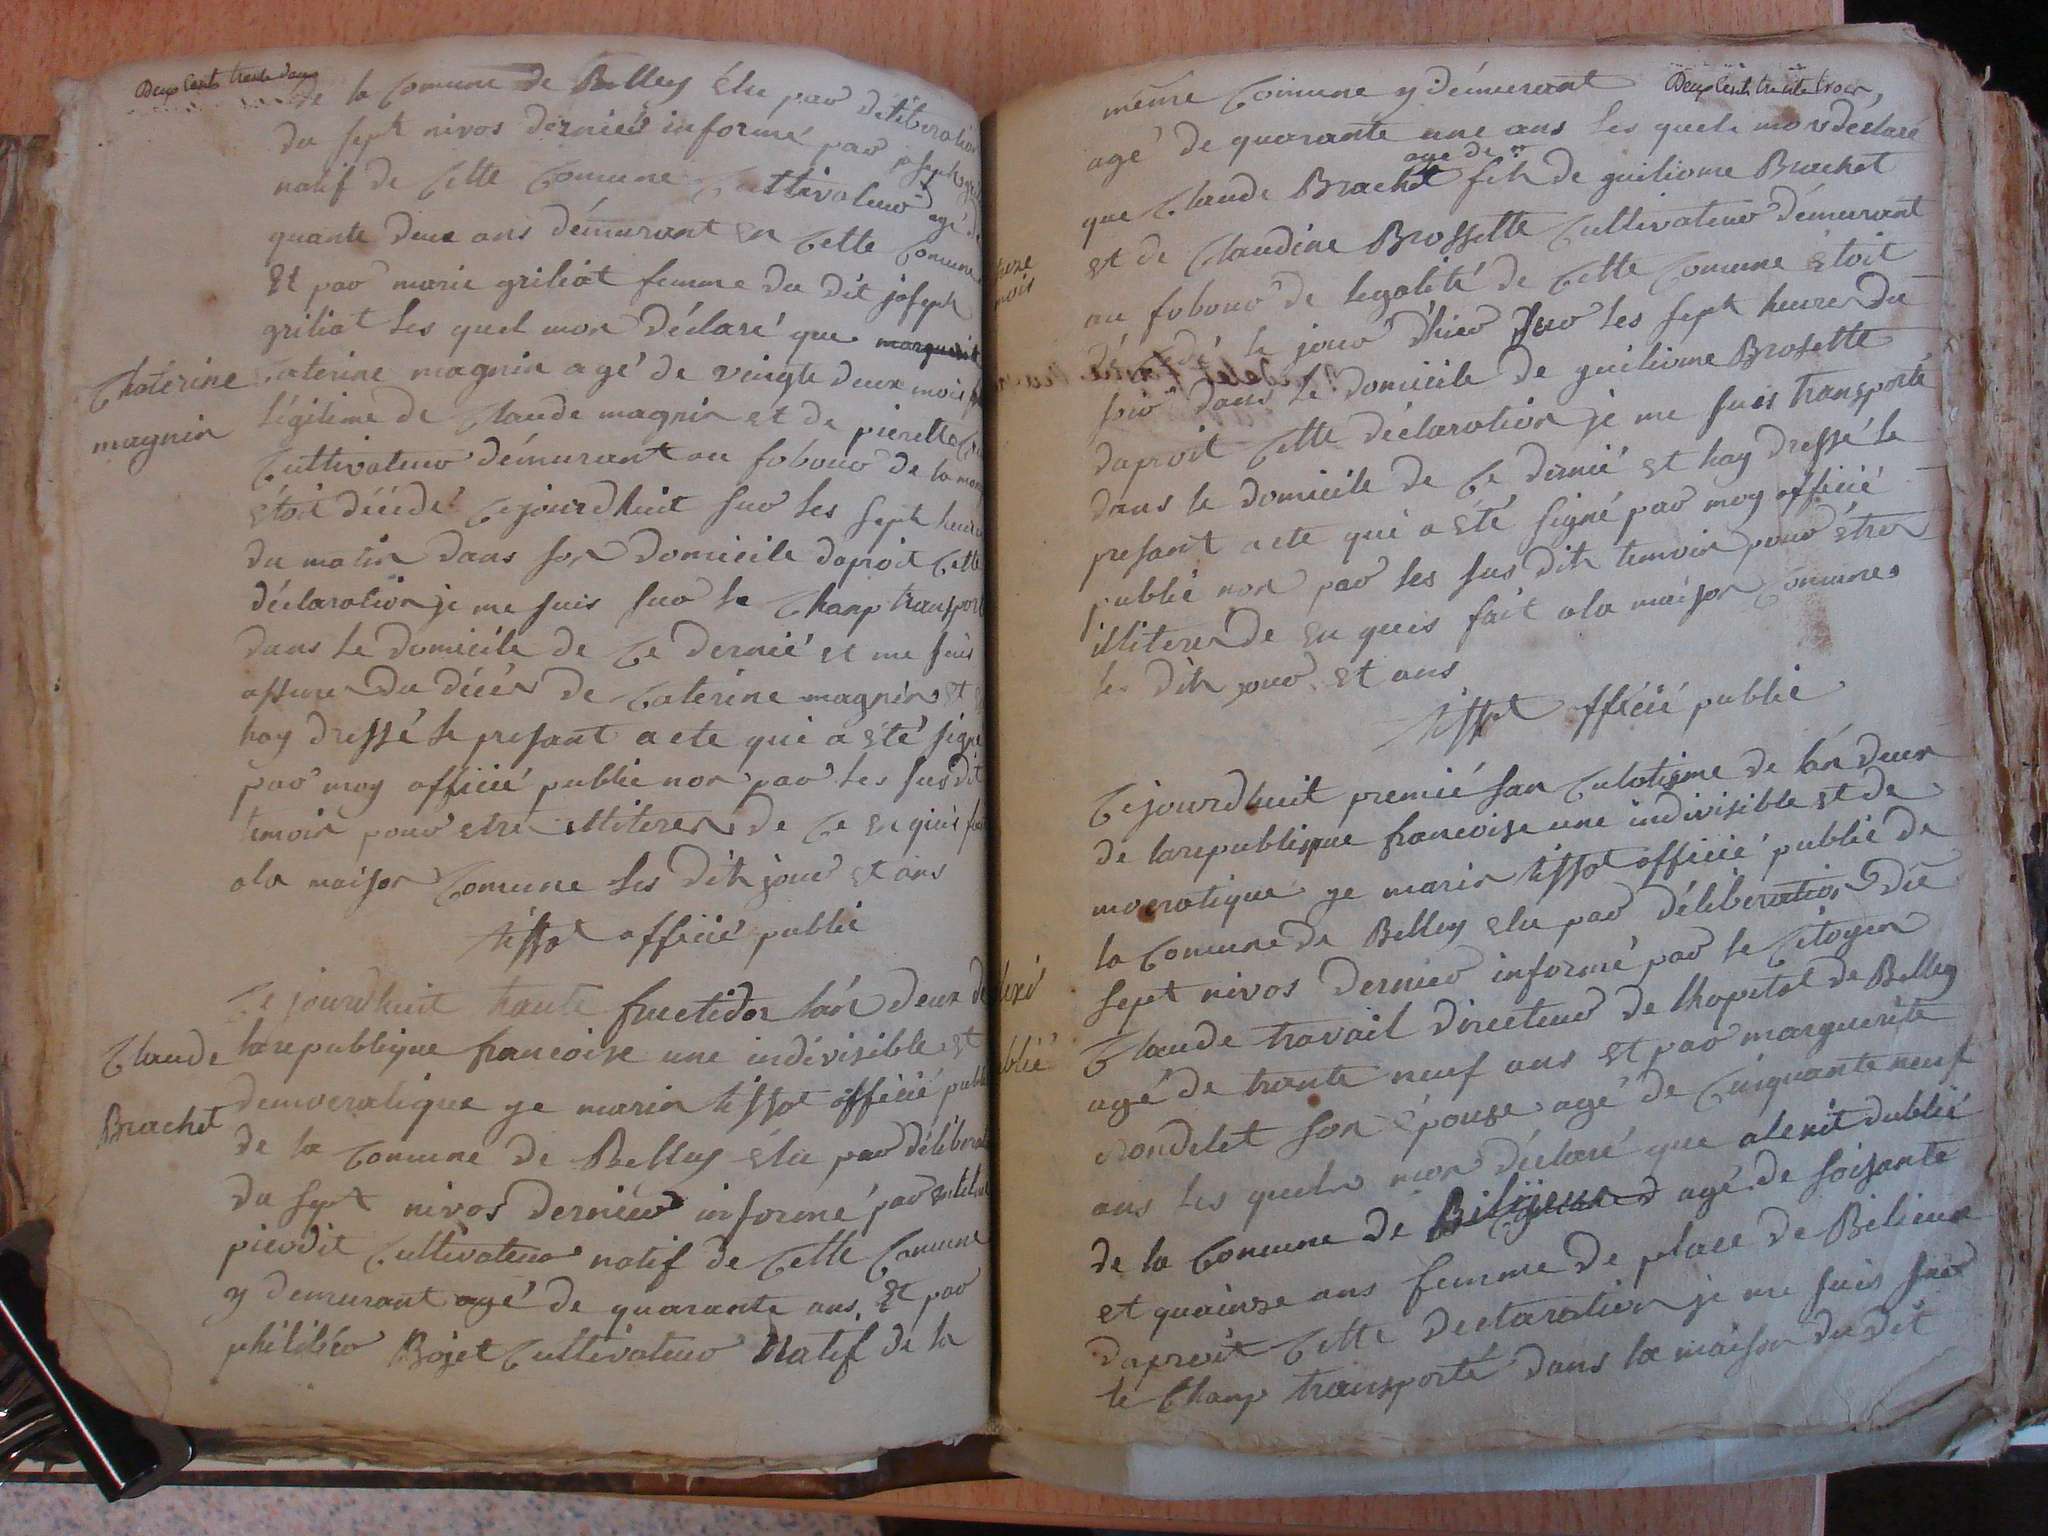 Deux Cents trente deux
de la Comune de Belley élu par déliberation
du sept nivos dernier informé par joseph
natif de Cette Comune Cultivateur agé de
quante deux ans démurant en Cette Comune
Et par marie griliat femme du dit joseph
griliat les quel mon déclaré que marguerit
Chaterine
magnin
Caterine magnin agé de veingte deux mois
légitime de Claude magnin et de pierette
Cultivateur démurant au fobour de la
étoit décédé Cejourdhuit sur les sept heure
du matin dans son domicile daproit Cette
déclaration je me suis sur le Champ transporté
dans le domicile de Ce dernié et me suis
assurer du décès de Caterine magnin et
hay dressé le presant acte qui a été signé
par moy officié public non par les susdit
temoin pour etre illiterer de Ce enquis fait
ala maison Comune les dits jour et ans
tissot officié public
Claude
Brachet
Ce jourdhuit trante fructidor lan deux de
la republique francoise une indivisible et
democratique ye marin tissot officié public
de la Comune de Belley élu par délibera
du sept nivos dernier informé par
pierdit Cultivateur natif de Cette Comune
y demurant agé de quarante ans Et par
philibér Bojet Cultivateur natif de la
Deux Cents trente trois
même Comune y démurant
agé de quarante une ans les quels mon déclaré
age de
que Claude Brachet fils de guiliome Brachet
et de Claudine Brossette Cultivateur démurant
au fobour de legalité de Cette Comune étoit
décédé le jour dhier sur les sept heure du
soir dans le domicile de guiliome Brosette
daproit Cette déclaration je me suis transporté
dans le domicile de Ce dernié et hay dressé le
presant acte qui a été signé par moy officié
public non par les sus dits temoin pour étre
illiterer de enquis fait ala maison Comune
les dits jour et ans
tissot officié public
Cejourdhuit premié san Culotisme de lan deux
de larepublique francoise une indivisible et de
mocratique ye marin tissot officié public de
la Comune de Belley élu par déliberation du
sept nivos dernier informé par le Citoyen
Claude travail directeur de lhopital de Belley
agé de trante neuf ans et par marguerite
rondelet son épouse agé de Cinquante neuf
ans les quels mon déclaré que
de la Comune de agé de soisante
et quainze ans femme de place de Bilieux
daproit Cette declaration je me suis sur
le Champ transporté dans la maison du dit